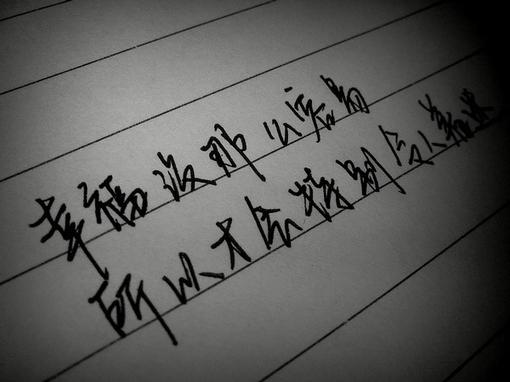 幸福没那么容易
所以才会特别让人着迷